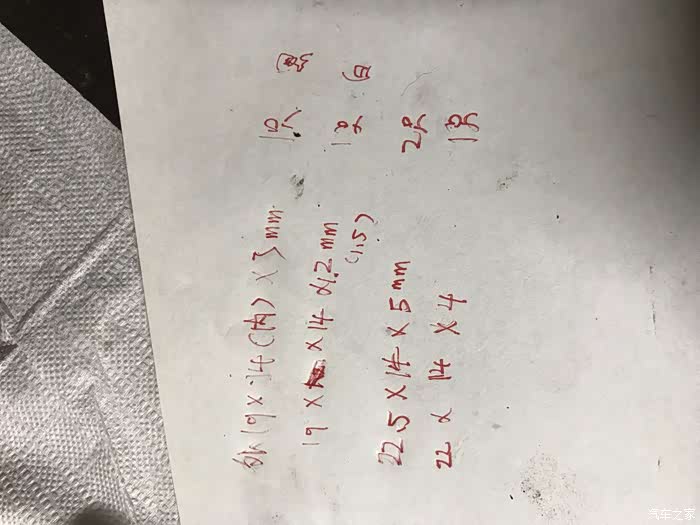 外19×14(内)×3mm 1只 黑
19××14×1.2mm 1只 白
(1.5)
22.5×14×5mm 2只
22×14×4 1只
汽车之家